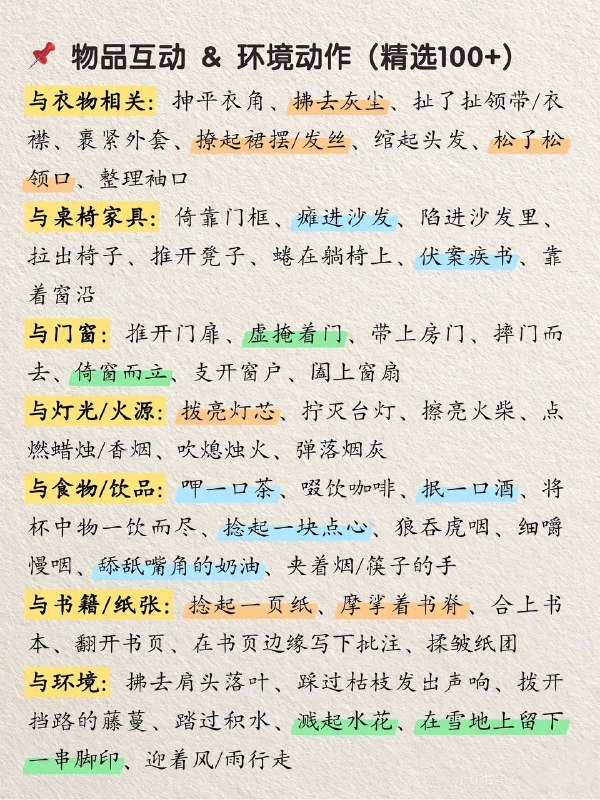 📌 物品互动 & 环境动作（精选100+）
与衣物相关：抻平衣角、拂去灰尘、扯了扯领带/衣
襟、裹紧外套、撩起裙摆/发丝、绾起头发、松了松
领口、整理袖口
与桌椅家具：倚靠门框、瘫进沙发、陷进沙发里、
拉出椅子、推开凳子、蜷在躺椅上、伏案疾书、靠
着窗沿
与门窗：推开门扉、虚掩着门、带上房门、摔门而
去、倚窗而立、支开窗户、阖上窗扇
与灯光/火源：拨亮灯芯、拧灭台灯、擦亮火柴、点
燃蜡烛/香烟、吹熄烛火、弹落烟灰
与食物/饮品：呷一口茶、啜饮咖啡、抿一口酒、将
杯中物一饮而尽、捻起一块点心、狼吞虎咽、细嚼
慢咽、舔舐嘴角的奶油、夹着烟/筷子的手
与书籍/纸张：捻起一页纸、摩挲着书脊、合上书
本、翻开书页、在书页边缘写下批注、揉皱纸团
与环境：拂去肩头落叶、踩过枯枝发出声响、拨开
挡路的藤蔓、踏过积水、溅起水花、在雪地上留下
一串脚印、迎着风/雨行走